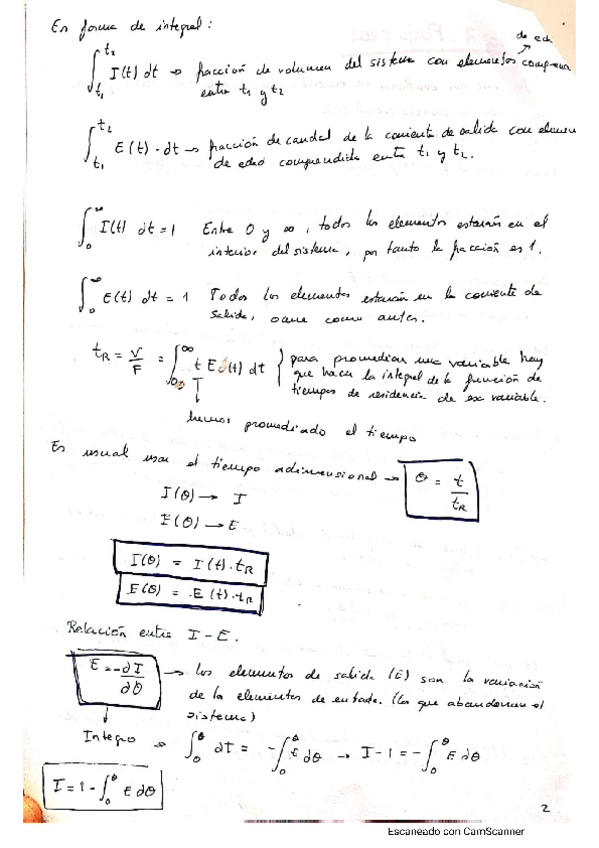 En forma de integral:
de ed
∫_{t1}^{t2} I(t) dt → fracción de volumen del sistema con elementos comprend
entre t1 y t2
∫_{t1}^{t2} E(t) · dt → fracción de caudal de la corriente de salida con elemen
de edad comprendida entre t1 y t2.
∫_0^∞ I(t) dt = 1 Entre 0 y ∞, todos los elementos estarán en el
interior del sistema, por tanto la fracción es 1.
∫_0^∞ E(t) dt = 1 Todos los elementos estarán en la corriente de
salida, ocurre como antes.
tR = V/F = ∫_0^∞ t E(t) dt } para promediar una variable hay
que hacer la integral de la función de
tiempos de residencia de esa variable.
↓
hemos promediado el tiempo
Es usual usar el tiempo adimensional → θ = t/tR
I(θ) → I
E(θ) → E
I(θ) = I(t) · tR
E(θ) = E(t) · tR
Relación entre I - E.
E = -∂I/∂θ → los elementos de salida (E) son la variación
de los elementos de entrada. (los que abandonan el
sistema)
Integro → ∫_0^θ ∂I = -∫_0^θ E ∂θ → I - 1 = -∫_0^θ E ∂θ
I = 1 - ∫_0^θ E ∂θ
2
Escaneado con CamScanner